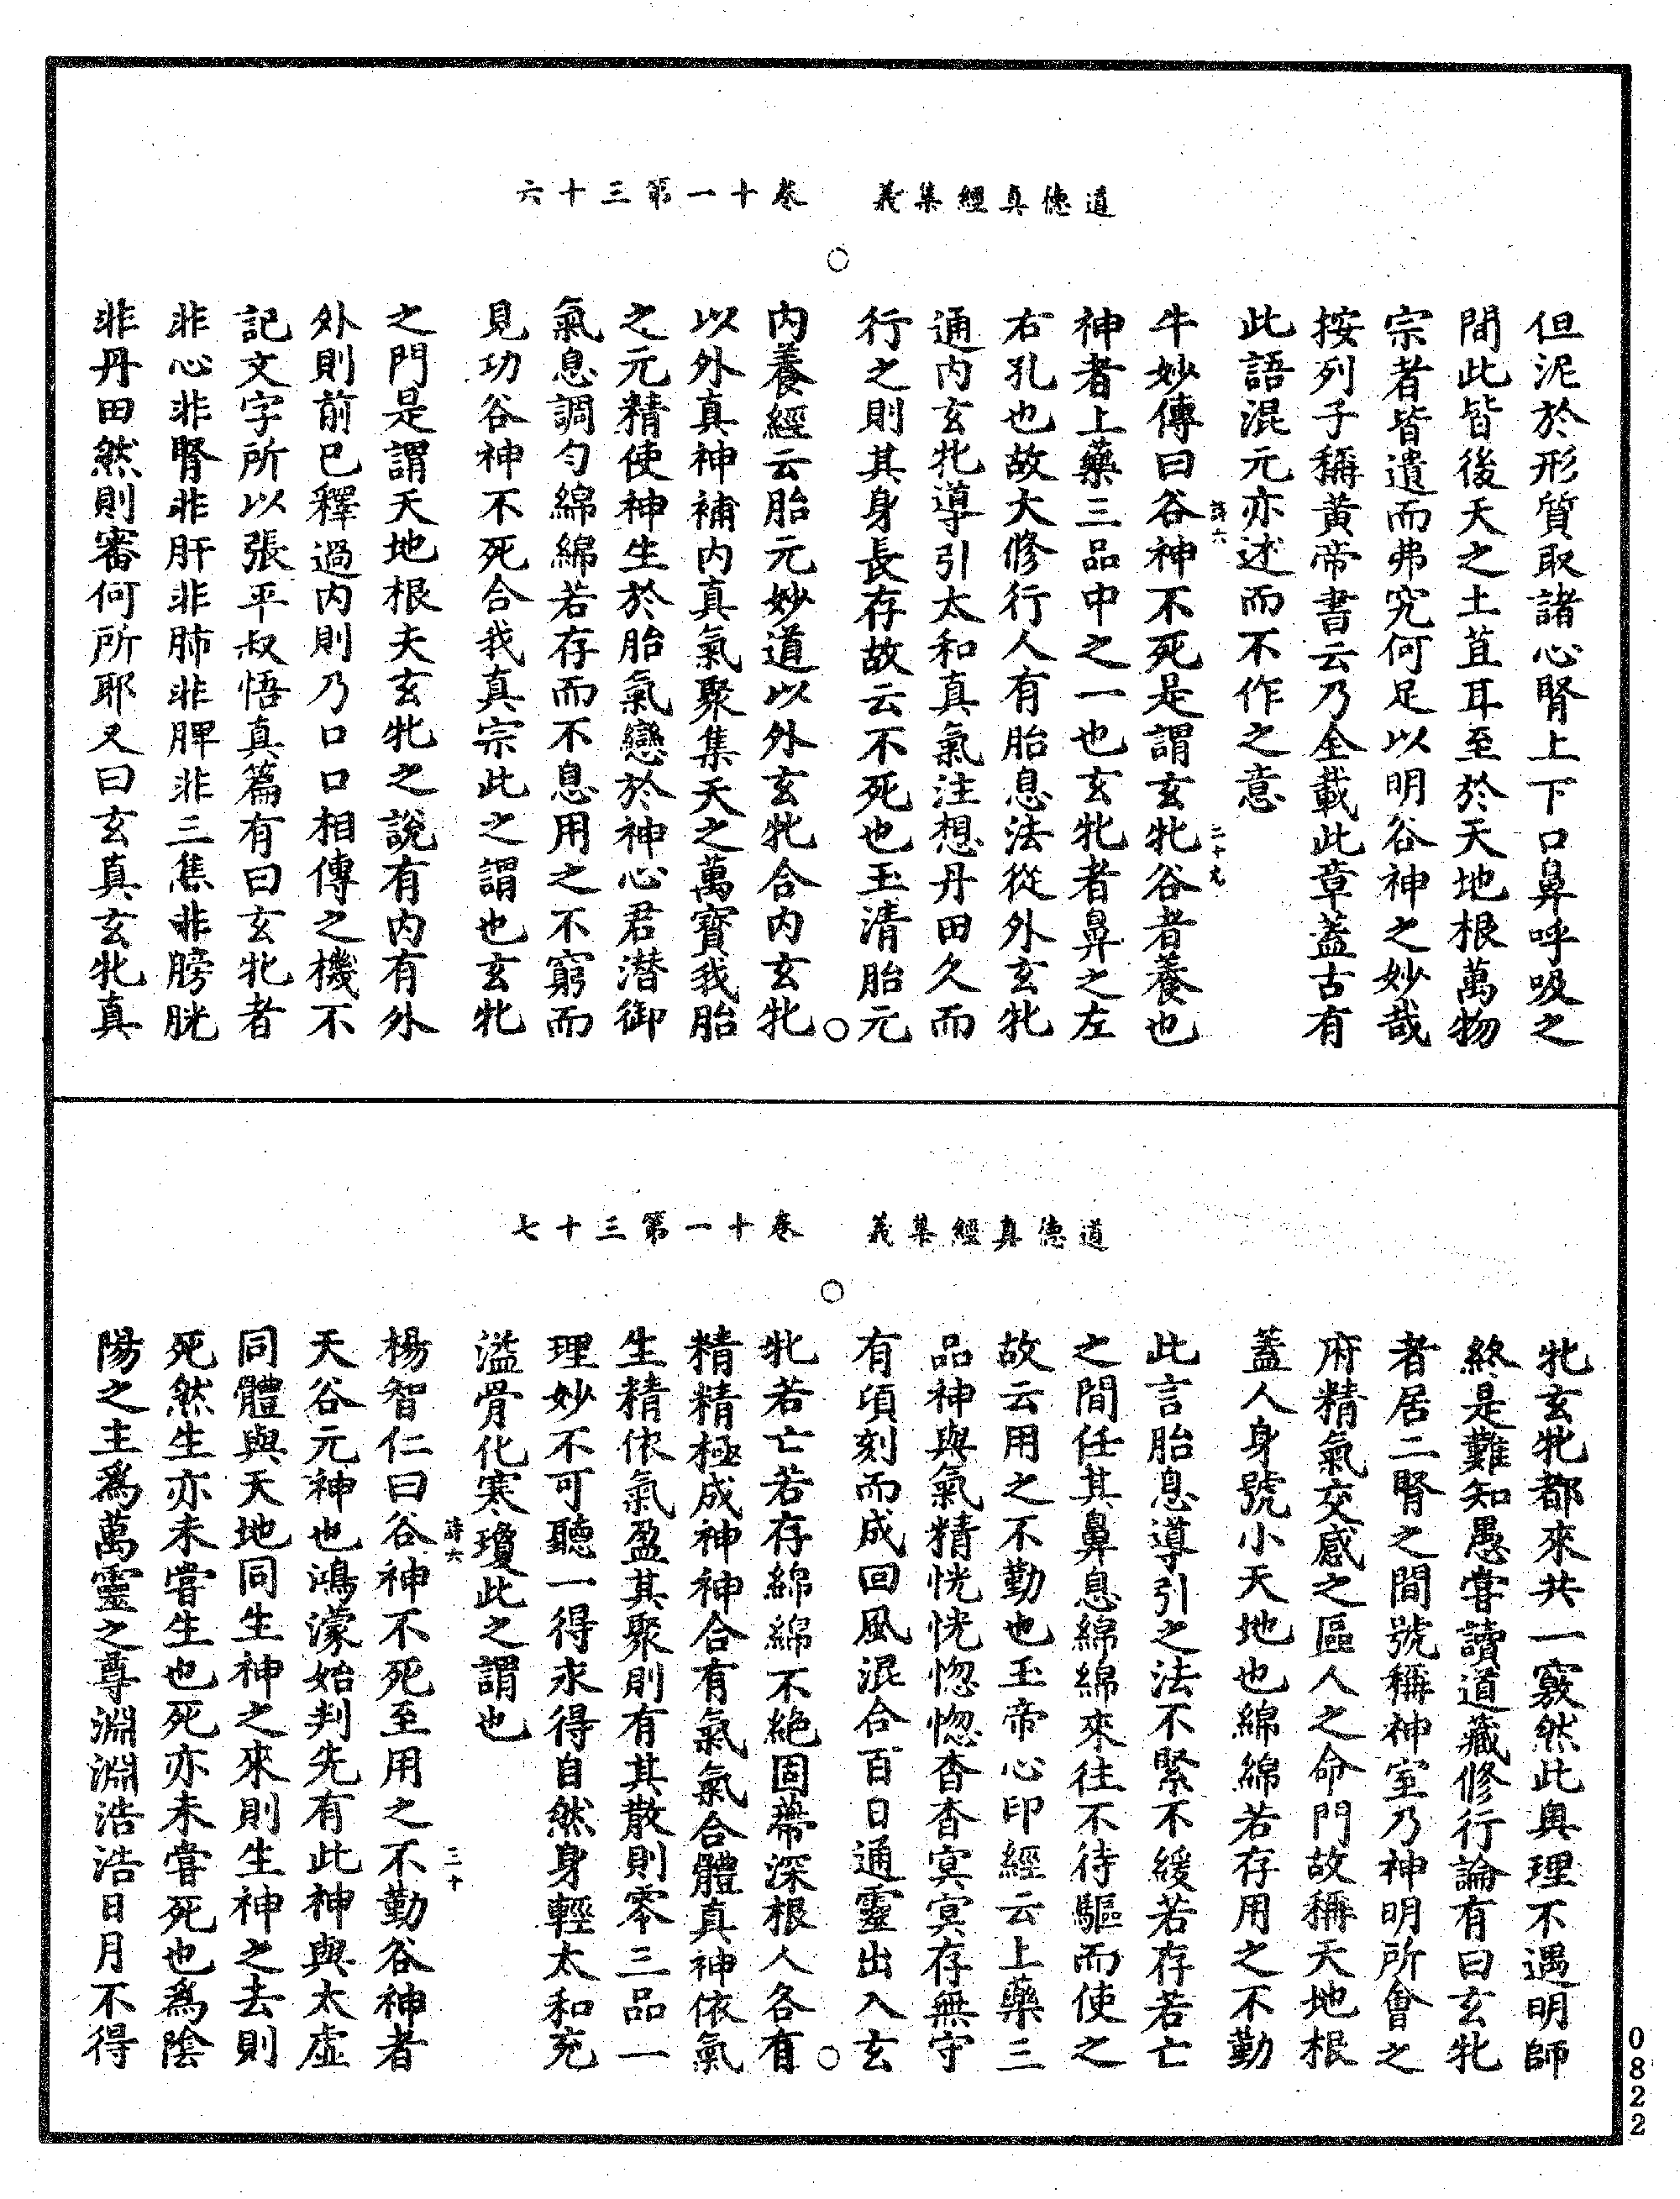 道德真經集義　卷十一第三十六
但泥於形質取諸心腎上下口鼻呼吸之
間此皆後天之土苴耳至於天地根萬物
宗者皆遺而弗究何足以明谷神之妙哉
按列子稱黃帝書云乃全載此章蓋古有
此語混元亦述而不作之意
詩六　二十九
牛妙傳曰谷神不死是謂玄牝谷者養也
神者上藥三品中之一也玄牝者鼻之左
右孔也故大修行人有胎息法從外玄牝
通內玄牝導引太和真氣注想丹田久而
行之則其身長存故云不死也玉清胎元
內養經云胎元妙道以外玄牝合內玄牝
以外真神補內真氣聚集天之萬寶我胎
之元精使神生於胎氣戀於神心君潜御
氣息調勻綿綿若存而不息用之不窮而
見功谷神不死合我真宗此之謂也玄牝
之門是謂天地根夫玄牝之說有內有外
外則前已釋過內則乃口口相傳之機不
記文字所以張平叔悟真篇有曰玄牝者
非心非腎非肝非肺非脾非三焦非膀胱
非丹田然則審何所耶又曰玄真玄牝真
道德真經集義　卷十一第三十七
牝玄牝都來共一竅然此奧理不遇明師
終是難知愚嘗讀道藏修行論有曰玄牝
者居二腎之間號稱神室乃神明所會之
府精氣交感之區人之命門故稱天地根
蓋人身號小天地也綿綿若存用之不勤
此言胎息導引之法不緊不緩若存若亡
之間任其鼻息綿綿來往不待驅而使之
故云用之不勤也玉帝心印經云上藥三
品神與氣精恍恍惚惚杳杳冥冥存無守
有頃刻而成回風混合百日通靈出入玄
牝若亡若存綿綿不絕固蔕深根人各有
精精極成神神合有氣氣合體真神依氣
生精依氣盈其聚則有其散則零三品一
理妙不可聽一得永得自然身輕太和充
溢骨化寒瓊此之謂也
詩六　三十
楊智仁曰谷神不死至用之不勤谷神者
天谷元神也鴻濛始判先有此神與太虛
同體與天地同生神之來則生神之去則
死然生亦未嘗生也死亦未嘗死也為陰
陽之主為萬靈之尊淵淵浩浩日月不得
0822